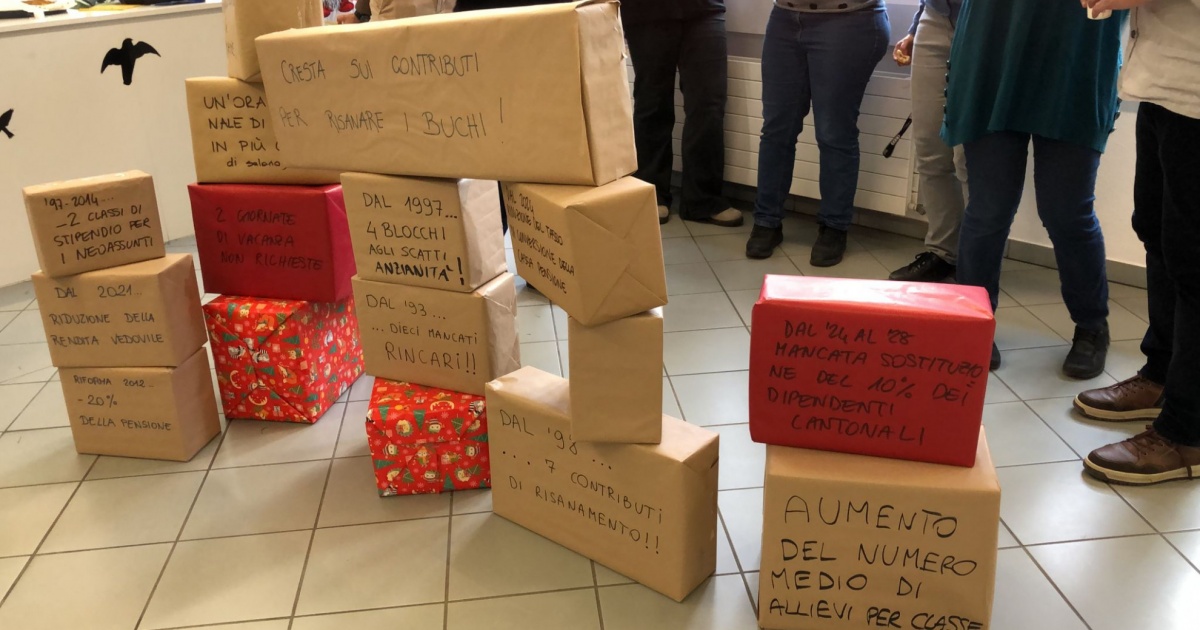 CRESTA SUI CONTRIBUTI
PER RISANARE I BUCHI!
UN'ORA
NALE DI
IN PIÙ
di
'97-2014...
-2 CLASSI DI
STIPENDIO PER
I NEOASSUNTI
DAL 2021...
RIDUZIONE DELLA
RENDITA VEDOVILE
RIFORMA 2012...
-20%
DELLA PENSIONE
2 GIORNATE
DI VACANZA
NON RICHIESTE
DAL 1997...
4 BLOCCHI
AGLI SCATTI
ANZIANITÀ!
DAL '93...
...DIECI MANCATI
RINCARI!!
DAL 2024
DEL TASSO
DI CONVERSIONE DELLA
CASSA PENSIONE
DAL '98...
... 7 CONTRIBUTI
DI RISANAMENTO!!
DAL '24 AL '28
MANCATA SOSTITUZIO
NE DEL 10% DEI
DIPENDENTI
CANTONALI
AUMENTO
DEL NUMERO
MEDIO DI
ALLIEVI PER CLASSE